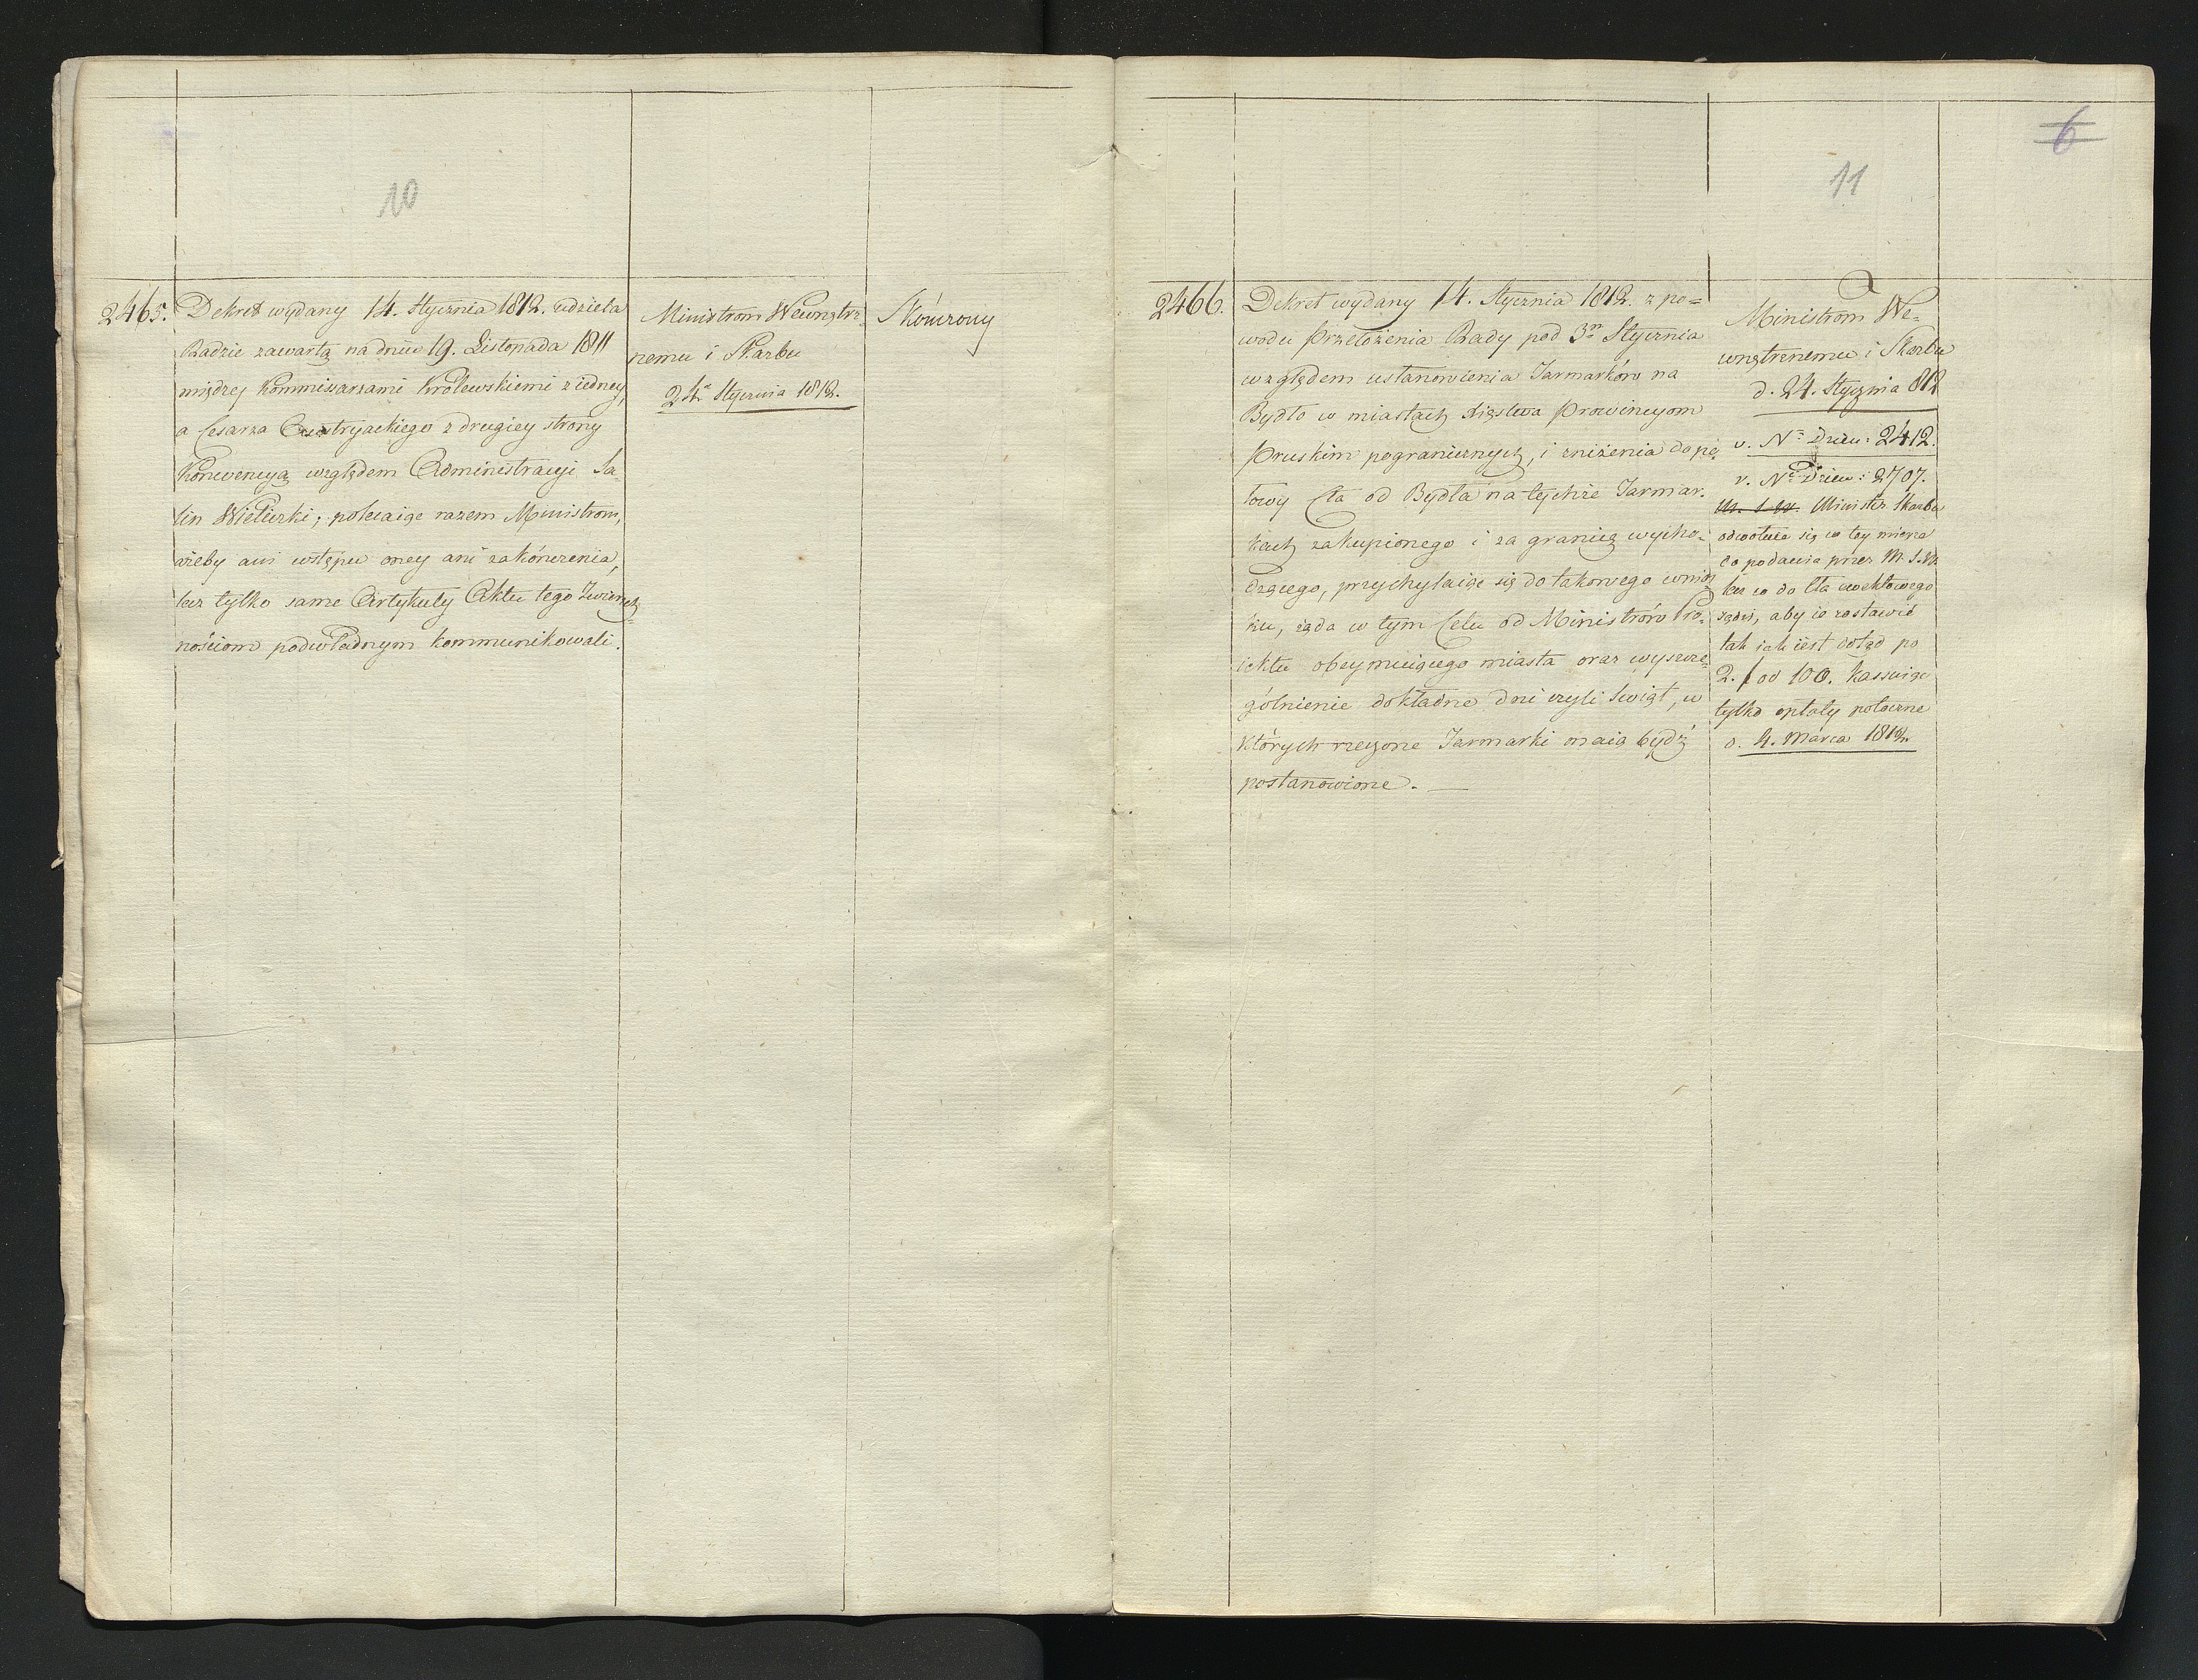 10
2465.
Dekret wydany 14. Stycznia 1812. udziela
Radzie zawartą na dniu 19. Listopada 1811
między Kommissarzami Królewskiemi z iedney,
a Cesarza Austryackiego z drugiey strony
Konwencyą względem Administracyi Sa-
lin Wieliczki; polecaiąc razem Ministrom,
ażeby ani wstępu oney ani zakończenia,
lecz tylko same Artykuły Aktu tego Zwierzch=
nościom podwładnym kommunikowali.
Ministrom Wewnętrz-
nemu i Skarbu
24a Stycznia 1812.
Skończony
6
11
2466.
Dekret wydany 14. Stycznia 1812. z po=
wodu Przełożenia Rady pod 3m Stycznia
względem ustanowienia Jarmarków na
Bydło w miastach Xięstwa Prowincyom
Pruskim pogranicznych, i zniżenia do po
łowy Cła od Bydła na tychże Jarmar-
kach zakupionego i za granicę wycho-
dzącego, przychylaiąc się do takowego wnios
ku, żąda w tym Celu od Ministrów Pro-
iektu obeymuiącego miasta oraz wyszcze-
gólnienie dokładne dni czyli Swiąt, w
których rzeczone Jarmarki maią bydź
postanowione. —
Ministrom We-
wnętrznemu i Skarbu
d. 24. Stycznia 812
v. No Dzien: 2412.
v. No Dzien: 2707.
M. S. W. Minister Skarbu
odwołuie się w tey mierze
do podania przez M. S. W.
lecz co do Cła
sądzi, aby ie zostawić
tak iak iest dotąd po
2. f od 100. kassuiąc
tylko opłaty poboczne
d. 4. Marca 1812.